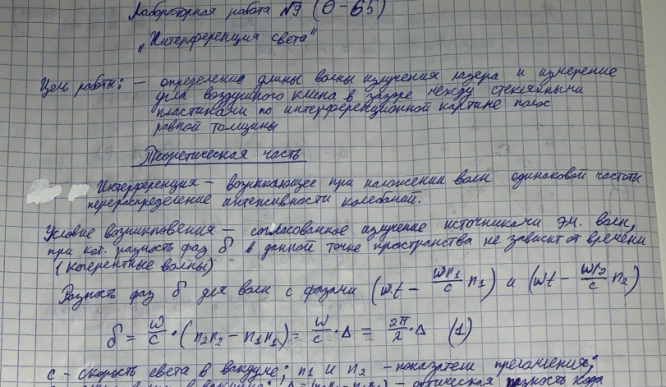 Лабораторная работа №9 (О-65)
„Интерференция света"
Цель работы: — определение длины волны излучения лазера и измерение
угла воздушного клина в зазоре между стеклянными
пластинками по интерференционной картине полос
равной толщины
Теоретическая часть
Интерференция — возникающее при наложении волн одинаковой частоты
перераспределение интенсивности колебаний.
Условие возникновения — согласованное излучение источниками эм. волн,
при кот. разность фаз δ в данной точке пространства не зависит от времени
(когерентные волны)
Разность фаз δ для волн с фазами (ωt − ωr₁/c n₁) и (ωt − ωr₂/c n₂)
δ = ω/c · (n₂r₂ − n₁r₁) = ω/c · Δ = 2π/λ · Δ (1)
c - скорость света в вакууме; n₁ и n₂ - показатели преломления;
в вакууме; Δ = - оптическая разность хода